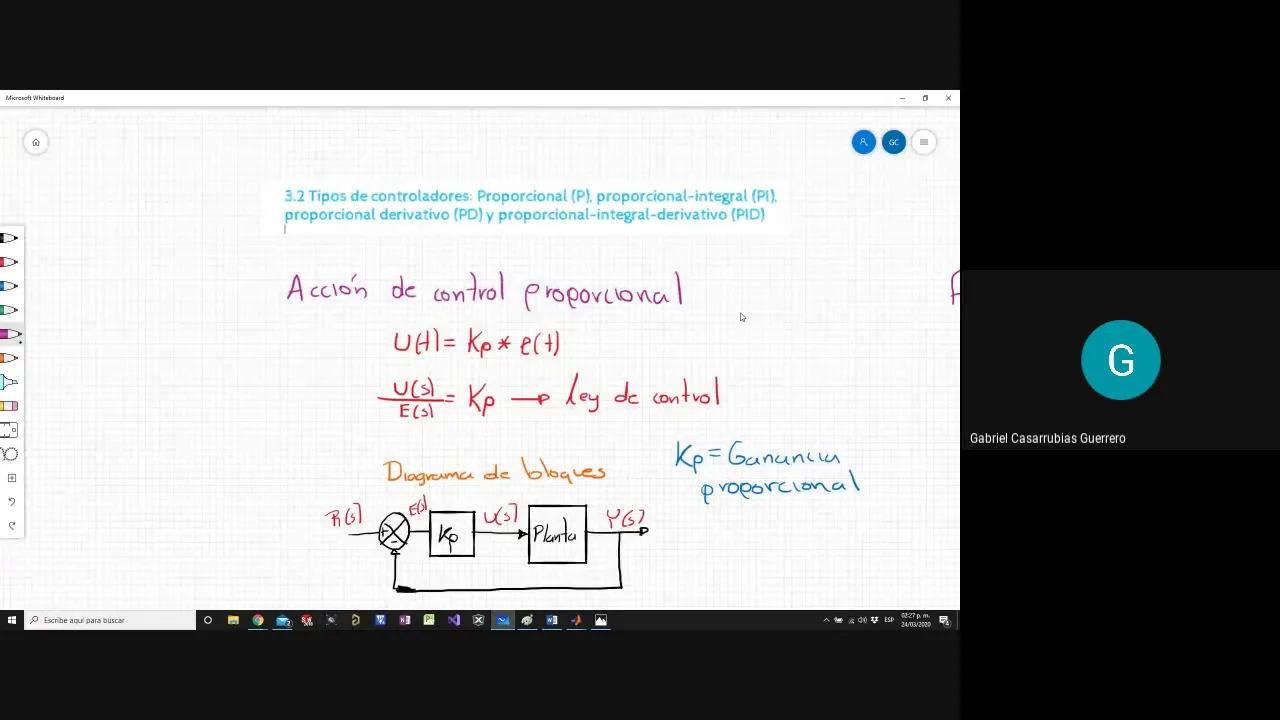 Microsoft Whiteboard
GC
3.2 Tipos de controladores: Proporcional (P), proporcional-integral (PI),
proporcional derivativo (PD) y proporcional-integral-derivativo (PID)
Acción de control proporcional
U(t) = Kp * e(t)
U(s)/E(s) = Kp → Ley de control
Kp = Ganancia
proporcional
Diagrama de bloques
R(s) + - E(s) Kp U(s) Planta Y(s)
G
Gabriel Casarrubias Guerrero
Escribe aquí para buscar
ESP
02:27 p. m.
24/03/2020